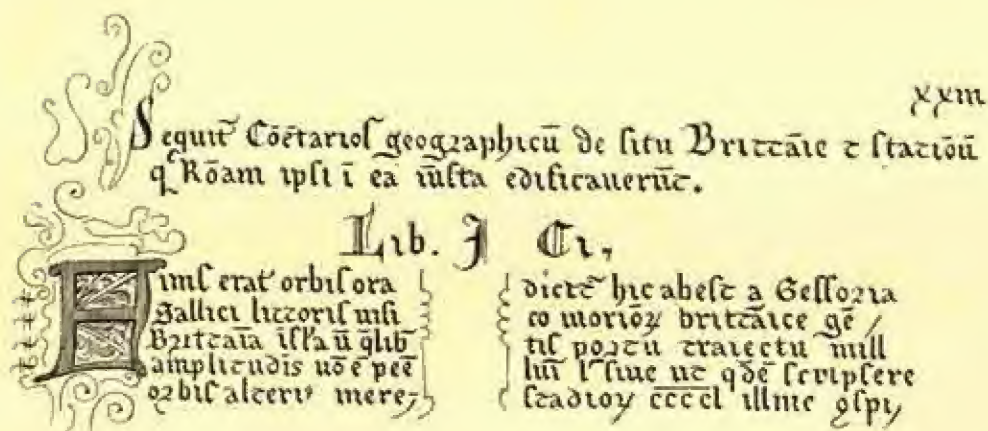 xxiii
Sequit̄ Cōētarioſ geographicū de ſitu Brittāie ⁊ ſtatiōū
q Rōam ipſi ī ea iūſta edificaverūt.
Lib. I Ci,
Finiſ erat orbiſ ora
Gallici littoriſ niſi
Brittaīa īſła ū q̄lib
amplitudis nō ē peē
orbiſ alteriꝰ mere,
dicēt̄ hic abeſt a Geſſoria
co morioꝝ brittāice gē /
tiſ portu traiectu mill
l ſiue ut qdē ſcripſere
ſtadioꝝ c̄c̄c̄c̄l illinc ꝯſpi,